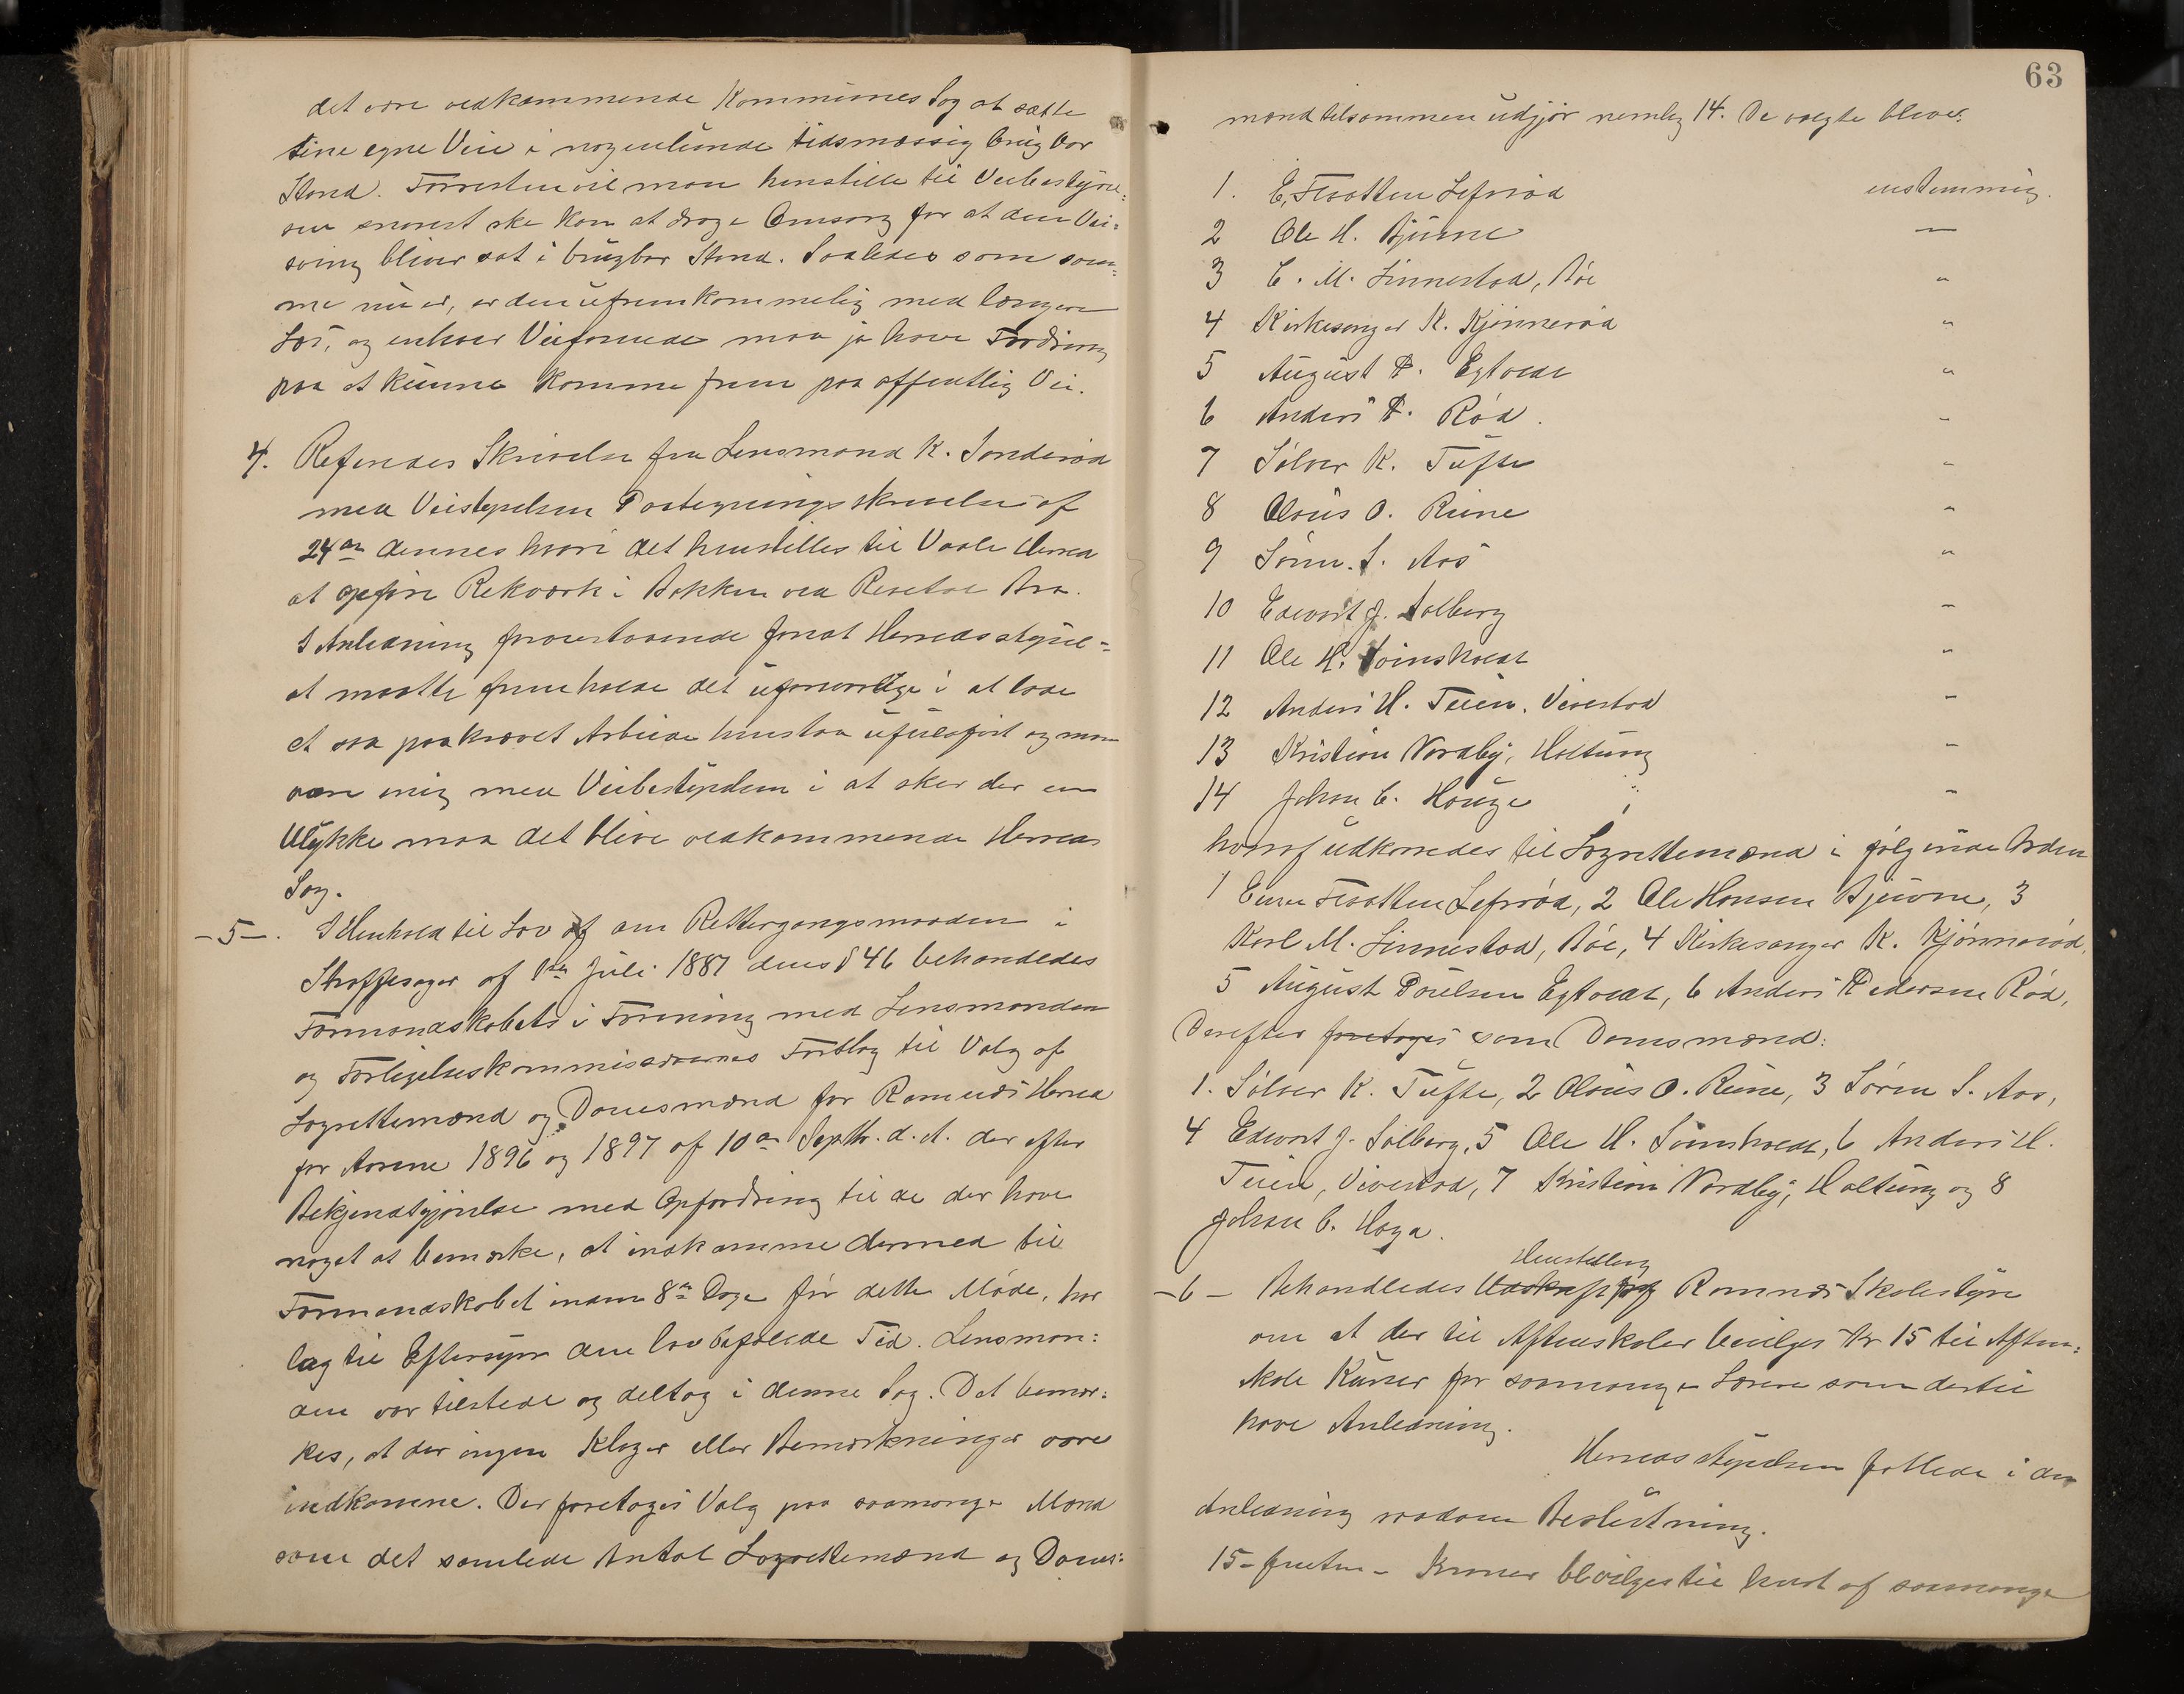 det være vedkommende Kommunes Sag at sætte
sine egne Veie i nogenlunde tidsmæssig brugbar
Stand. Forresten vil man henstille til Veibestyrel=
sen snarest ske kan at drage Omsorg for at den Vei=
sving bliver sat i brugbar Stand. Saaledes som sam=
me nu er, er den ufremkommelig med længere
Læs, og enhver Veifarende maa jo have Fordring
paa at kunne komme frem paa offentlig Vei.
4. Referedes Skrivelse fra Lensmand K. Sønderød
med Veistyrelsen Paategningsskrivelse af
24de dennes hvori det henstilles til Vaale Herred
at opføre Rekværk i Bakken ved Revetal Bro.
I Anledning forestaaende foreat Herredsstyrel=
at maatte fremholde det uforsvarlige i at lade
et saa paakrævet Arbeide henstaa ufuldført og man
være enig med Veibestyrelsen i at sker der en
Ulykke maa det blive vedkommende Herreds
Sag.
-5-. I Henhold til Lov af om Rettergangsmaaden i
Straffesager af 1ste Juli 1887 dens § 46 behandledes
Formandskabets i Forening med Lensmanden
og Forligelseskommissærernes Forslag til Valg af
Lagrettemænd og Domsmænd for Ramnæs Herred
for Aarene 1896 og 1897 af 10de Septbr. d. A. der efter
Bekjendtgjørelse med Opfordring til de der have
noget at bemærke, at indkomme dermed til
Formandskabet inden 8te Dage før dette Møde, har
lagt til Eftersyn den lovbefalede Tid. Lensman=
den var tilstede og deltog i denne Sag. Det bemær=
kes, at der ingen Klager eller Bemærkninger vare
indkomne. Der foretoges Valg paa saamange Mænd
som det samlede Antal Lagrettemænd og Doms=
63
mænd tilsammen udgjør nemlig 14. De valgte blive:
1. E. Flaatten Lefsrød enstemmig.
2 Ole H. Bjuerne —
3 C. M. Linnestad, Bøe "
4 Kirkesanger K. Kjønnerød "
5 August P. Egtvedt "
6 Anders P. Rød. "
7 Sølver K. Tufte "
8 Olous O. Riine "
9 Søren S. Aas "
10 Edevart J. Solberg "
11 Ole H. Soinsholdt "
12 Anders H. Teien, Vivestad "
13 Kristian Nordby, Holtung "
14 Johan C. Houge " "
hvoraf udkaaredes til Lagrettemænd i følgende Orden
1 Einer Flaatten Lefsrød, 2 Ole Hansen Bjuerne, 3
Karl M. Linnestad, Bøe, 4 Kirkesanger K. Kjønnerød,
5 August Poulsen Egtvedt, 6 Anders Pedersen Rød,
Derefter foretoges som Domsmænd:
1. Sølver K. Tufte, 2 Olous O. Riine, 3 Søren S. Aas,
4 Edevart J. Solberg, 5 Ole H. Soinsholdt, 6 Anders H.
Teien, Vivestad, 7 Kristian Nordby, Holtung og 8
Johan C. Haga.
Henstilling
-6- Behandledes fra Ramnæs Skolestyre
om at der til Aftenskoler bevilges Kr 15 til Aften=
skole Kurser for saamange Lærere som dertil
have Anledning.
Herredsstyrelsen fattede i den
Anledning saadan Beslutning.
15- femten - Kroner bevilges til hvert af saamange